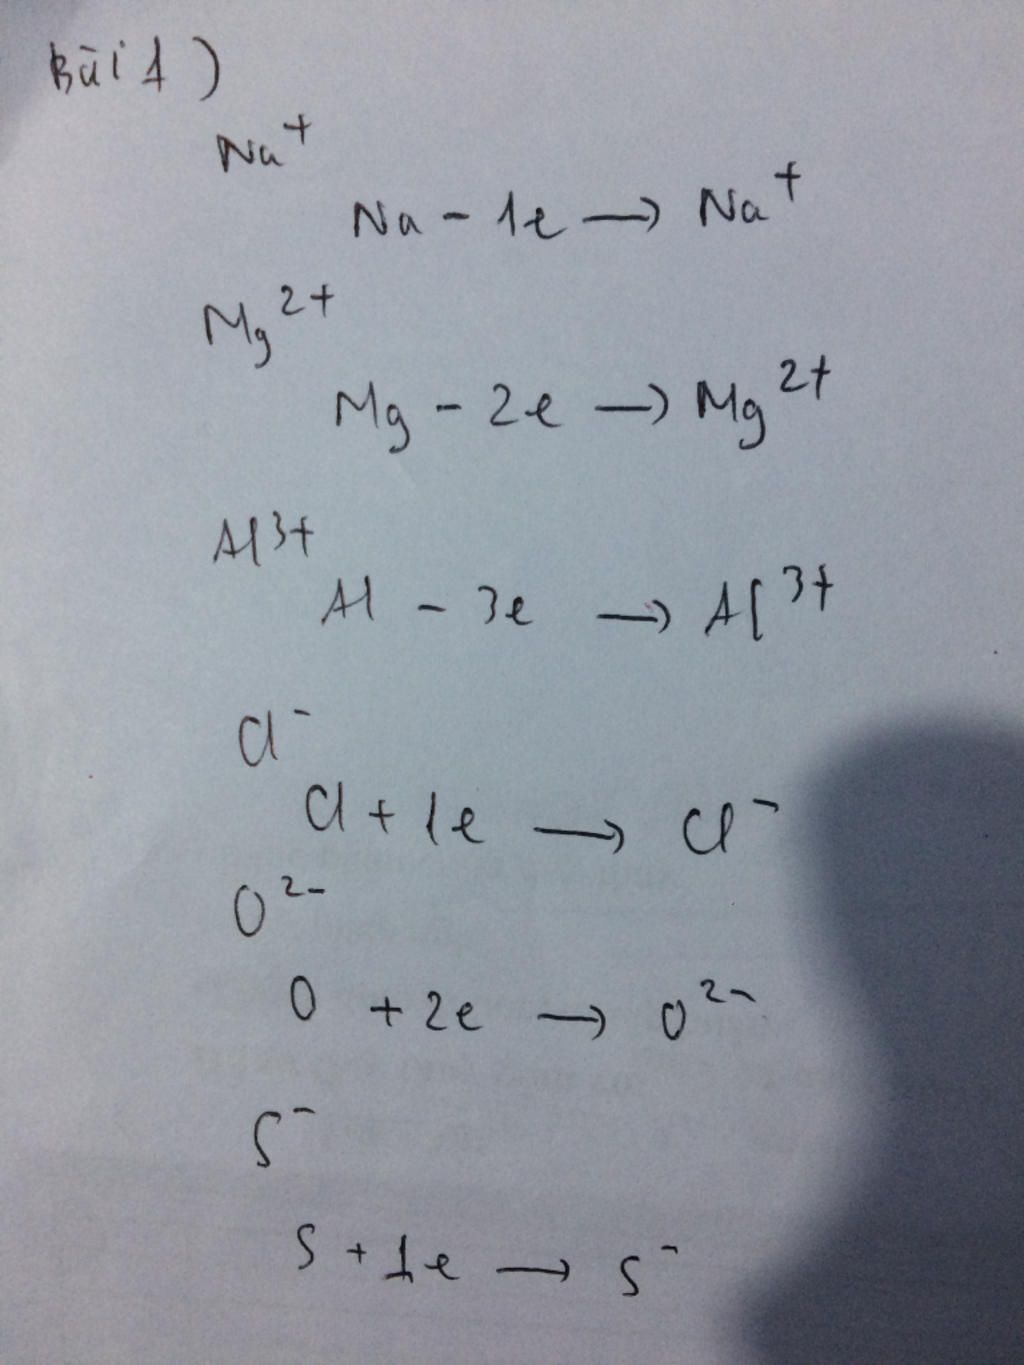 Bài 1)
Na⁺
Na - 1e → Na⁺
Mg²⁺
Mg - 2e → Mg²⁺
Al³⁺
Al - 3e → Al³⁺
Cl⁻
Cl + 1e → Cl⁻
O²⁻
O + 2e → O²⁻
S⁻
S + 1e → S⁻